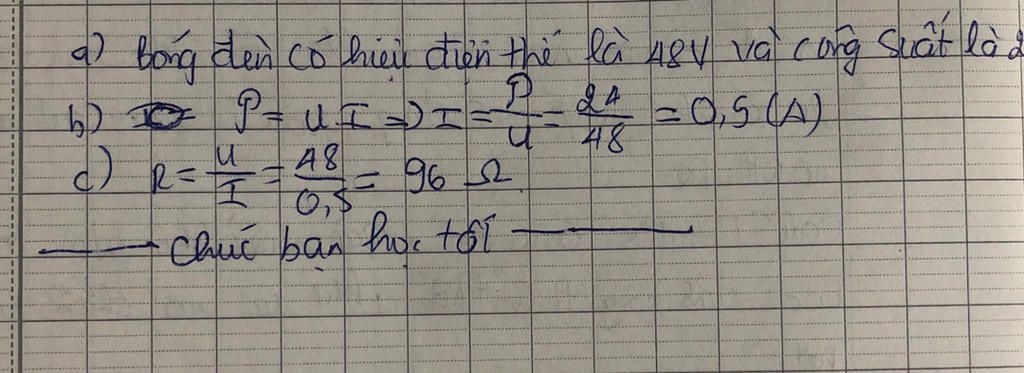 a) bóng đèn có hiệu điện thế là 48V và công suất là 2
b) P = U.I => I = P/U = 24/48 = 0,5 (A)
c) R = U/I = 48/0,5 = 96 Ω
chúc bạn học tốt